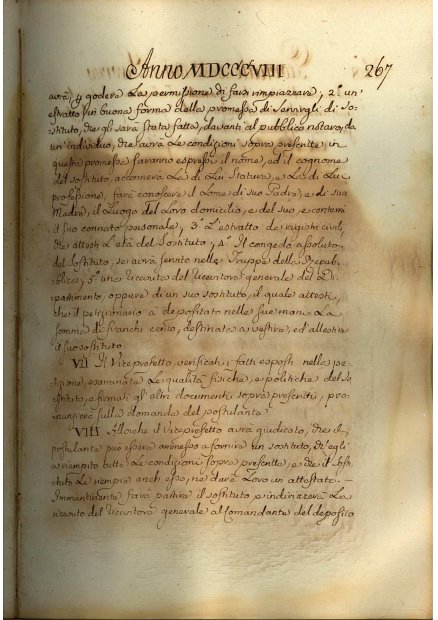 Anno MDCCCVIII 267
avrà y godere la permissione di farsi rimpiazzare; 2.° un'
estratto in buona forma della promessa di servirgli di so-
stituto, che gli sarà stata fatta, davanti al pubblico notaro, da
un'individuo, che avrà le condizioni sopra prescritte, in
questa promessa saranno espressi il nome, ed il cognome
del sostituto, accennerà la di lui statura, e la di lui
professione, farà conoscere il nome di suo Padre, e di sua
Madre, il luogo del loro domicilio, e del suo, e conterrà
il suo connotato personale; 3.° l'estratto de registri civili,
che attesti l'età del sostituto; 4.° il congedo assoluto
del sostituto, se avrà servito nelle truppe della Repub-
blica; 5.° una ricevuta del Ricevitore generale del Di-
partimento, oppure di un suo sostituto, il quale attesti,
che il petizionario à depositato nelle sue mani la
somma di franchi cento, destinata a vestire, ed allestire
il suo sostituto.
VII Il Viceprefetto, verificati i fatti esposti nella pe-
tizione, esaminata le qualità fisiche, e politiche del so-
stituto, e firmati gl'altri documenti sopra prescritti, pro-
nunzierà sulla domanda del postulante.
VIII Allorchè il Viceprefetto avrà giudicato, che il
postulante può essere ammesso a fornire un sostituto, ch'egli
à riempito tutte le condizioni sopra prescritte, e che il sosti-
tuto le riempie anch'esso, ne darà loro un attestato. -
Immantinente farà partire il sostituto e indirizzerà la
ricevuta del Ricevitore generale al Comandante del deposito